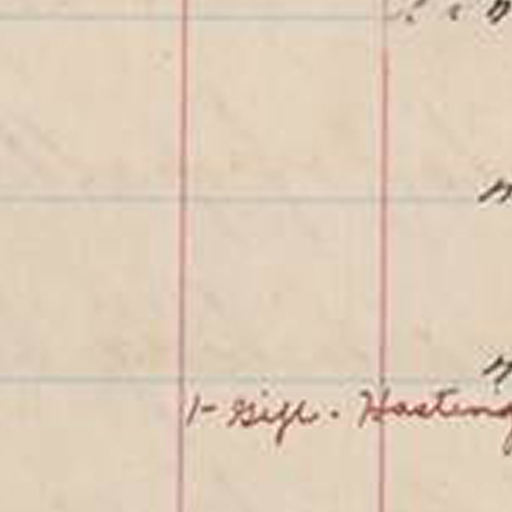 "
"
"
1- Gift. Hasting